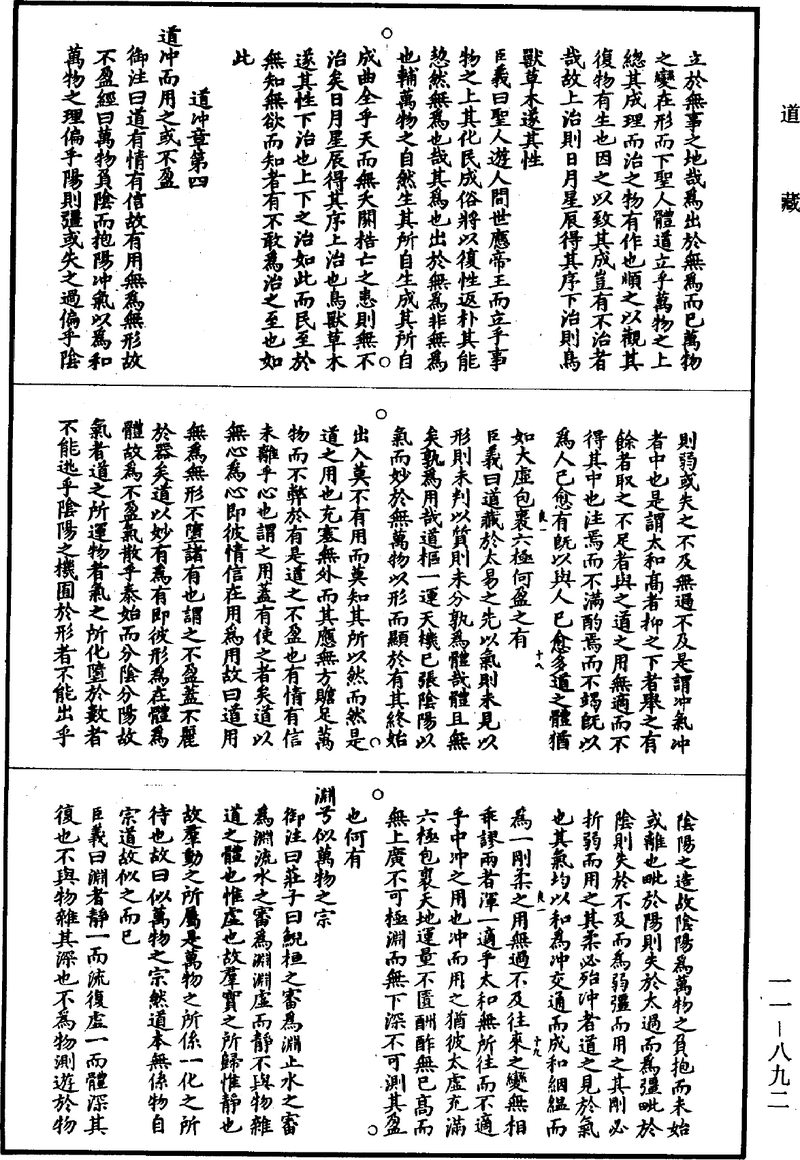 道藏
立於無事之地哉為出於無為而已萬物
之變在形而下聖人體道立乎萬物之上
總其成理而治之物有作也順之以觀其
復物有生也因之以致其成豈有不治者
哉故上治則日月星辰得其序下治則鳥
獸草木遂其性
臣義曰聖人遊人間世應帝王而立乎事
物之上其化民成俗將以復性返朴其能
愸然無為也哉其為也出於無為非無為
也輔萬物之自然生其所自生成其所自
成曲全乎天而無夭閼梏亡之患則無不
治矣日月星辰得其序上治也鳥獸草木
遂其性下治也上下之治如此而民至於
無知無欲而知者有不敢為治之至也如
此
道冲章第四
道冲而用之或不盈
御注曰道有情有信故有用無為無形故
不盈經曰萬物負陰而抱陽冲氣以為和
萬物之理偏乎陽則彊或失之過偏乎陰
則弱或失之不及無過不及是謂冲氣冲
者中也是謂太和高者抑之下者舉之有
餘者取之不足者與之道之用無適而不
得其中也注焉而不滿酌焉而不竭既以
為人已愈有既以與人已愈多道之體猶
如太虛包裹六極何盈之有
良一
十八
臣義曰道藏於太易之先以氣則未見以
形則未判以質則未分孰為體哉體且無
矣孰為用哉道樞一運天機已張陰陽以
氣而妙於無萬物以形而顯於有其終始
出入莫不有用而莫知其所以然而然是
道之用也充塞無外而其應無方贍足萬
物而不弊於有是道之不盈也有情有信
未離乎心也謂之用蓋有使之者矣道以
無心為心即彼情信在用為用故曰道用
無為無形不墮諸有也謂之不盈蓋不麗
於器矣道以妙有為有即彼形為在體為
體故為不盈氣散乎泰始而分陰分陽故
氣者道之所運物者氣之所化墮於數者
不能逃乎陰陽之機囿於形者不能出乎
陰陽之造故陰陽為萬物之負抱而未始
或離也毗於陽則失於太過而為彊毗於
陰則失於不及而為弱彊而用之其剛必
折弱而用之其柔必殆冲者道之見於氣
也其氣均以和為冲交通而成和絪縕而
良一
十九
為一剛柔之用無過不及往來之變無相
乖謬兩者渾一適乎太和無所往而不適
乎中冲之用也冲而用之猶彼太虛充滿
六極包裹天地運量不匱酬酢無已高而
無上廣不可極淵而無下深不可測其盈
也何有
淵兮似萬物之宗
御注曰莊子曰鯢桓之審為淵止水之審
為淵流水之審為淵淵虛而靜不與物雜
道之體也惟虛也故群實之所歸惟靜也
故群動之所屬是萬物之所係一化之所
待也故曰似萬物之宗然道本無係物自
宗道故似之而已
臣義曰淵者靜一而流復虛一而體深其
復也不與物雜其深也不為物測遊於物
一一—八九二